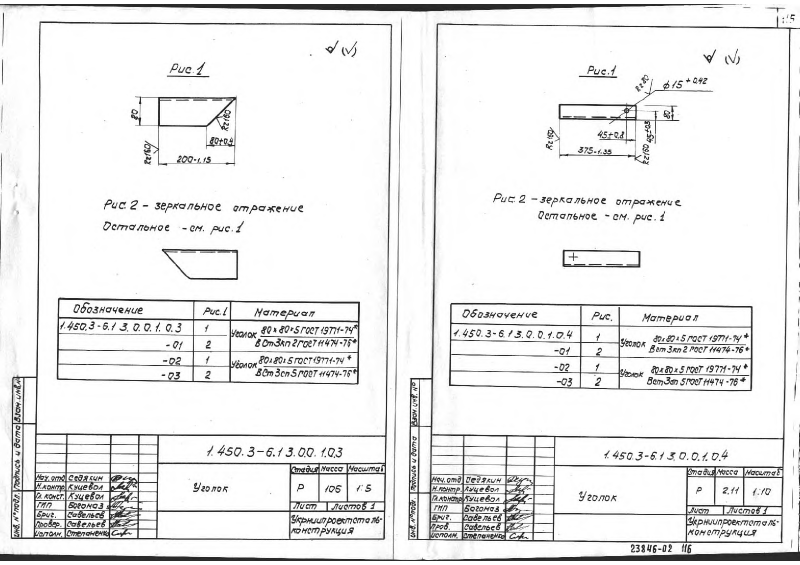 Рис.1
80
Rz160
Rz160
80±0,4
200-1,15
Рис.2 - зеркальное отражение
Остальное - см. рис.1
Обозначение Рис.1 Материал
1.450.3-6.1 3.0.0.1.0.3 1 Уголок 80×80×5 ГОСТ 19771-74*
-01 2 ВСт3кп2 ГОСТ 11474-76*
-02 1 Уголок 80×80×5 ГОСТ 19771-74*
-03 2 ВСт3сп5 ГОСТ 11474-76*
1.450.3-6.1 3.0.0.1.0.3
Стадия Масса Масштаб
Нач.отд Седякин
Н.контр. Куцевол
Гл.конст. Куцевол
ГИП Богоназ
Бриг. Савельев
Провер. Савельев
Исполн. Степаненко
Уголок
Р 105 1:5
Лист Листов 1
Укрниипроектсталь-
конструкция
Инв.№подл. Подпись и дата Взам.инв.№
Рис.1
Rz80
ф15+0,42
80
Rz160
45±0,8
45±0,8
375-1,35
Rz160
Рис.2 - зеркальное отражение
Остальное - см. рис.1
Обозначение Рис. Материал
1.450.3-6.1 3.0.0.1.0.4 1 Уголок 80×80×5 ГОСТ 19771-74*
-01 2 ВСт3кп2 ГОСТ 11474-76*
-02 1 Уголок 80×80×5 ГОСТ 19771-74*
-03 2 ВСт3сп5 ГОСТ 11474-76*
1.450.3-6.1 3.0.0.1.0.4
Стадия Масса Масштаб
Нач.отд Седякин
Н.контр. Куцевол
Гл.контр. Куцевол
ГИП Богоназ
Бриг. Савельев
Пров. Савельев
Исполн. Степаненко
Уголок
Р 2,11 1:10
Лист Листов 1
Укрниипроектсталь-
конструкция
Инв.№подл. Подпись и дата Взам.инв.№
23846-02 116